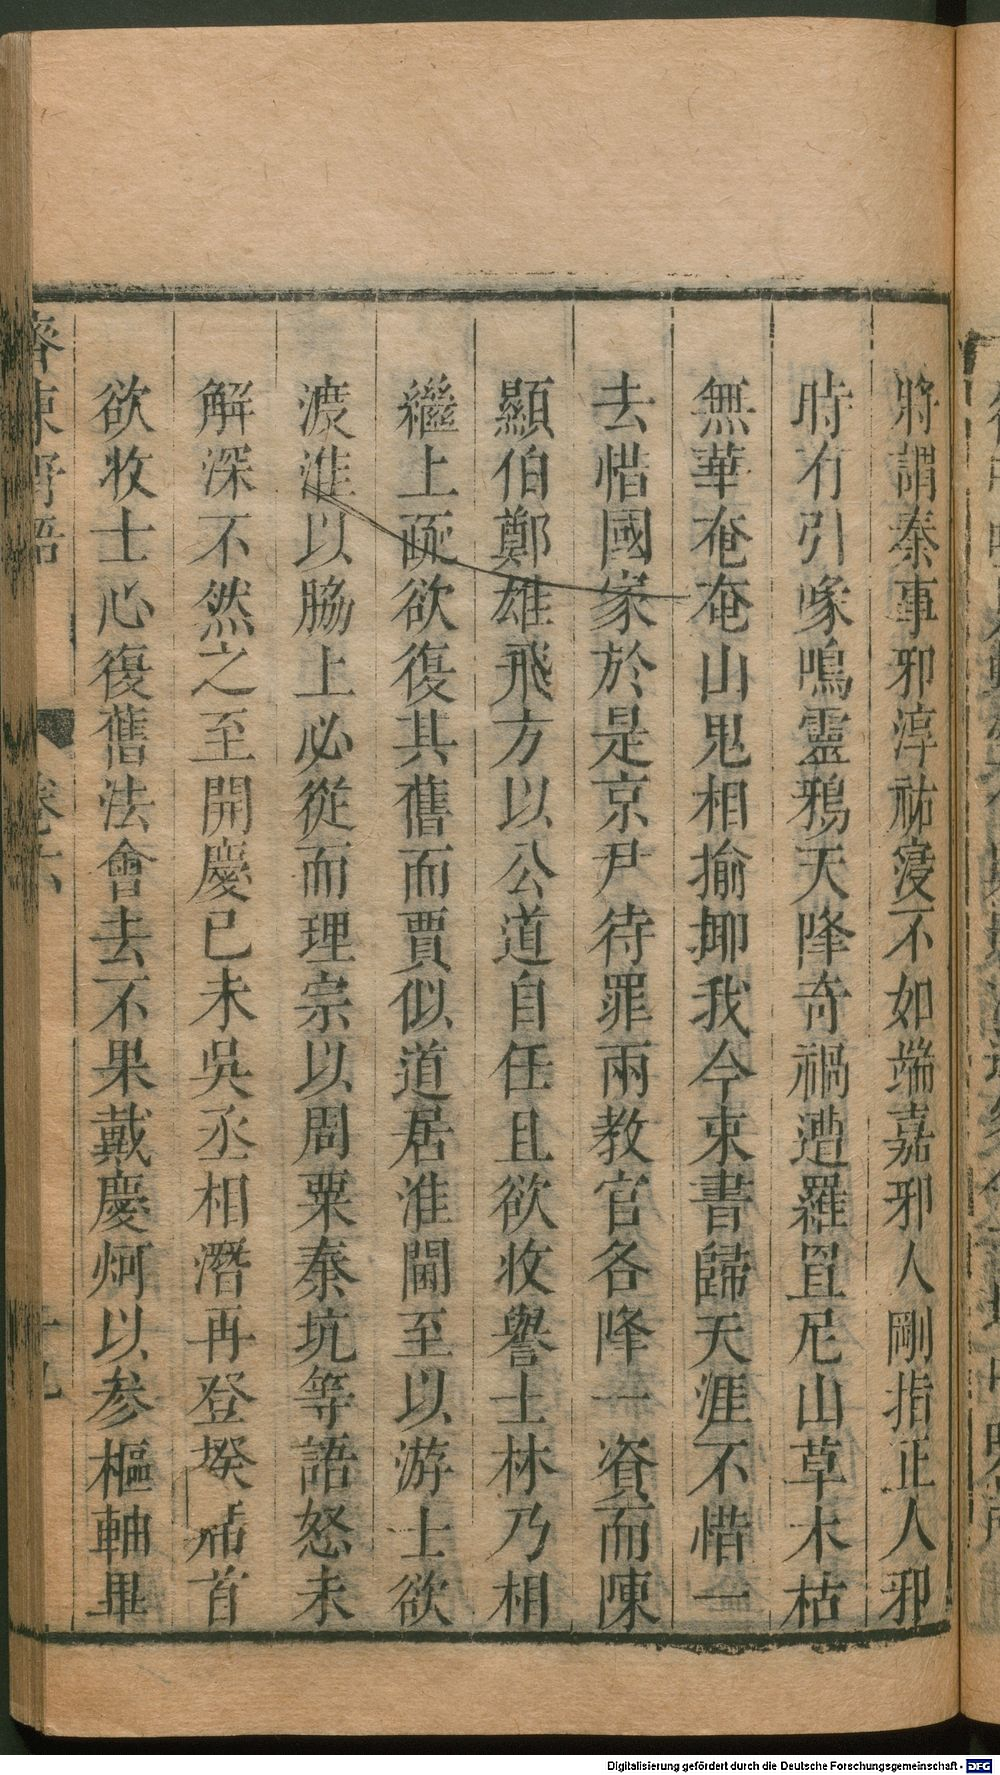 將謂秦事邪淳祐寖不如端嘉邪人剛指正人邪
時冇引喙鳴靈鴉天降奇禍遭羅罝尼山草木枯
無華奄奄山鬼相揄揶我今束書歸天涯不惜一
去惜國家於是京尹待罪兩教官各降一資而陳
顯伯鄭雄飛方以公道自任且欲收譽士林乃相
繼上疏欲復其舊而賈似道居淮閫至以游士欲
渡淮以脇上必從而理宗以周粟秦坑等語怒未
解深不然之至開慶已未吳丞相潛再登揆席首
欲收士心復舊法會去不果戴慶炣以参樞軸畢
齊東野語 卷六 十九
Digitalisierung gefördert durch die Deutsche Forschungsgemeinschaft - DFG